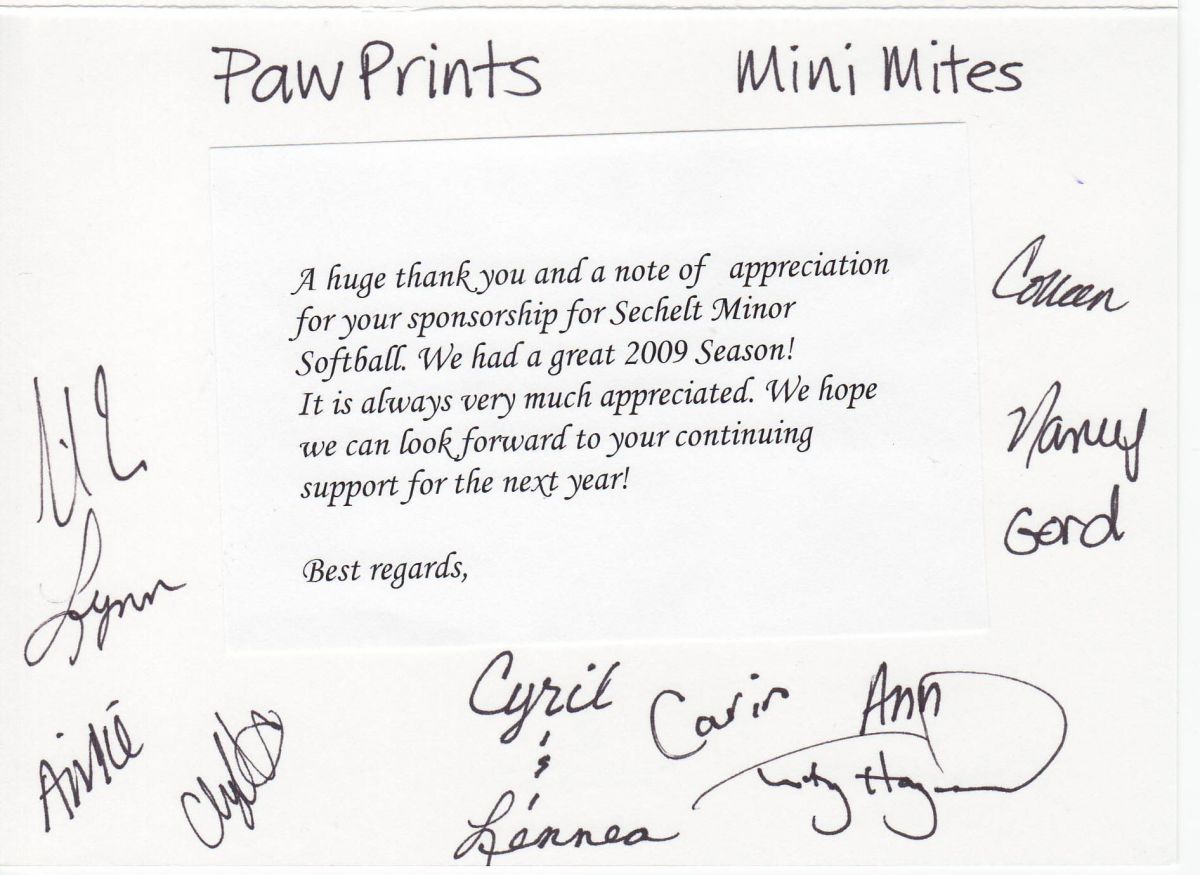 Paw Prints Mini Mites
A huge thank you and a note of appreciation
for your sponsorship for Sechelt Minor
Softball. We had a great 2009 Season!
It is always very much appreciated. We hope
we can look forward to your continuing
support for the next year!
Best regards,
Colleen
Nancy
Gord
Lynn
Cyril
&
Linnea
Carin
Ann